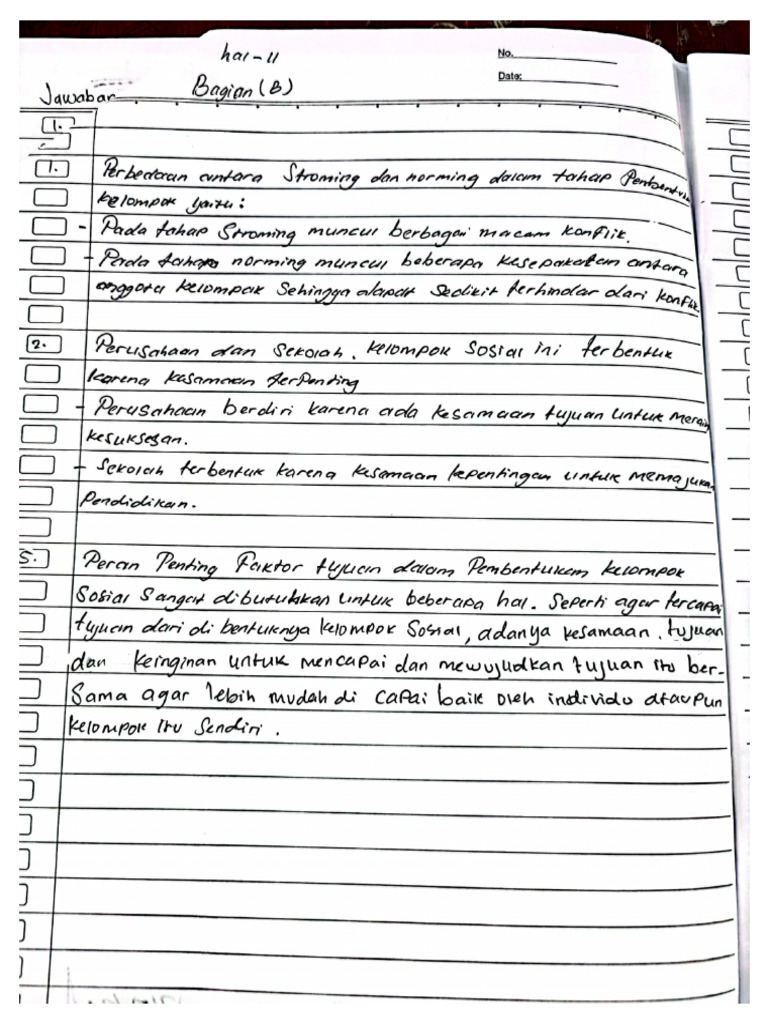 hal-11
No.
Date:
Jawaban
Bagian (B)
1.
1. Perbedaan antara Stroming dan norming dalam tahap Pembentukan
kelompok yaitu:
- Pada tahap Stroming muncul berbagai macam konflik.
- Pada tahap norming muncul beberapa kesepakatan antara
anggota kelompok sehingga dapat sedikit terhindar dari konflik
2. Perusahaan dan sekolah. kelompok sosial ini terbentuk
karena kesamaan terpenting
- Perusahaan berdiri karena ada kesamaan tujuan untuk meraih
kesuksesan.
- Sekolah terbentuk karena kesamaan kepentingan untuk memajukan
Pendidikan.
5. Peran Penting Faktor tujuan dalam Pembentukan kelompok
Sosial Sangat dibutuhkan untuk beberapa hal. Seperti agar tercapai
tujuan dari di bentuknya kelompok Sosial, adanya kesamaan, tujuan
dan keinginan untuk mencapai dan mewujudkan tujuan itu ber-
Sama agar lebih mudah di capai baik oleh individu ataupun
kelompok itu Sendiri.